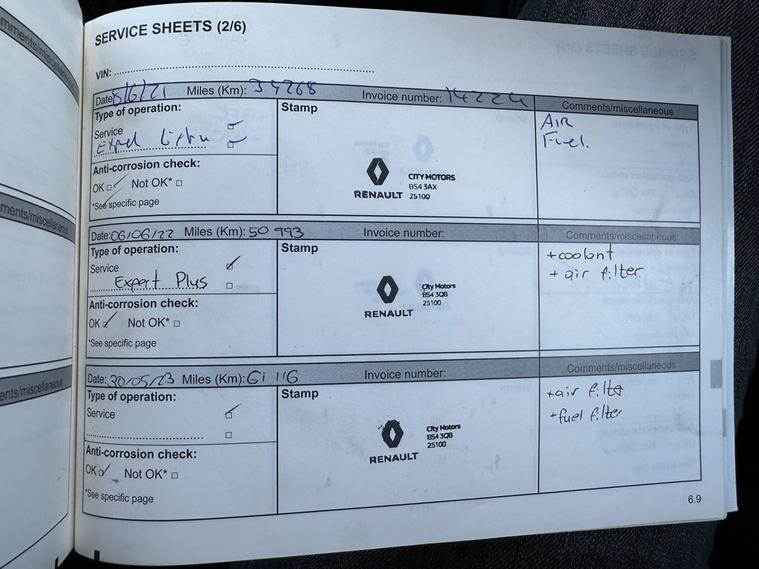 mments/miscellaneous
SERVICE SHEETS (2/6)
VIN:
Date: 8/6/21 Miles (Km): 34268 Invoice number: 14224 Comments/miscellaneous
Type of operation: Stamp
Service
AIR
Fuel.
Anti-corrosion check:
OK Not OK*
*See specific page
RENAULT
CITY MOTORS
BS4 3AX
25100
ments/miscellaneous
Date: 06/06/22 Miles (Km): 50 993 Invoice number: Comments/miscellaneous
Type of operation: Stamp
Service
Expert Plus
+coolant
+ air filter
Anti-corrosion check:
OK Not OK*
*See specific page
RENAULT
City Motors
BS4 3QB
25100
ents/miscellaneous
Date: 30/05/23 Miles (Km): 61 116 Invoice number: Comments/miscellaneous
Type of operation: Stamp
Service
+air filter
+fuel filter
Anti-corrosion check:
OK Not OK*
*See specific page
RENAULT
City Motors
BS4 3QB
25100
6.9